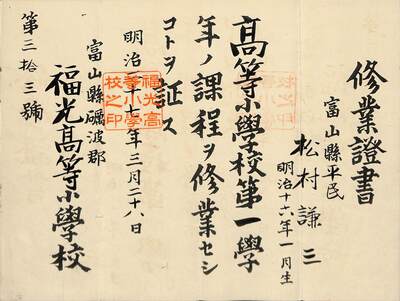 修業證書
富山縣平民
松村謙三
明治十六年一月生
高等小學校第一學
年ノ課程ヲ修業セシ
コトヲ証ス
明治二十七年三月二十八日
富山縣礪波郡
福光高等小學校
第三拾三號
福光高
等小學
校之印